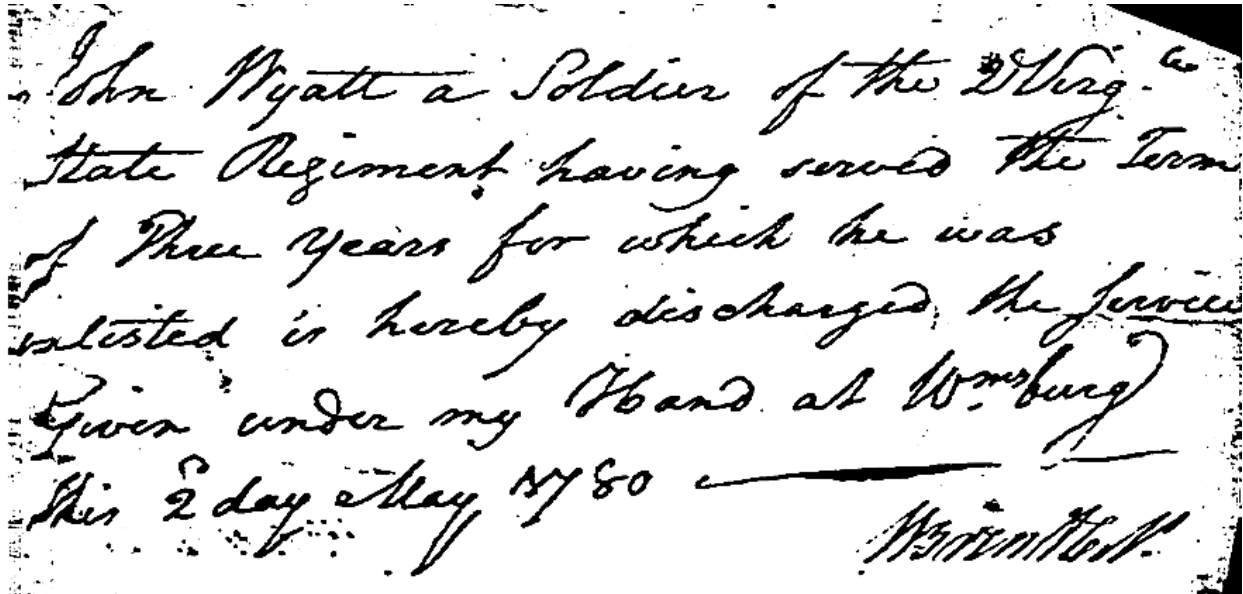 John Wyatt a Soldier of the 2d Virga
State Regiment having served the Term
of Three Years for which he was
enlisted is hereby discharged the Service
Given under my Hand at Wmsburg
this 2d day May 1780